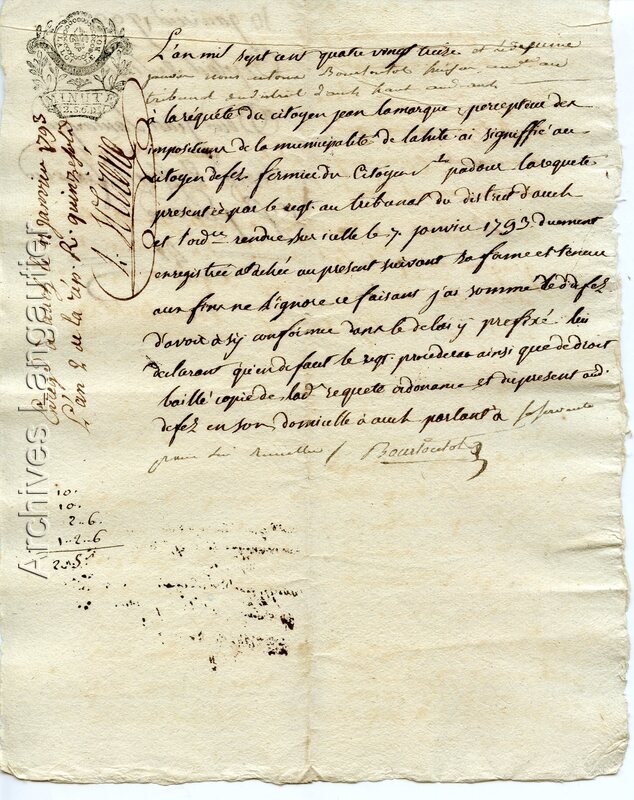 L'an mil sept cent quatre vingt treize et le
janvier nous Bourtoulot huissier au
tribunal
a la réquéte du citoyen jean lamarque, percepteur des
impositions de la municipalité de lahite ai signiffié au
citoyen defés fermier du Citoyen padour la requete
presentée par le reqt. au tribunal du district d'auch
et l'ordce. rendue sur icelle le 7. janvier 1793. duement
enregistrée atachée au present suivant sa forme et teneur
aux fins ne l'ignore ce faisant j'ai sommé led. defez
d'avoir a s'y conformer dans le delai y prefixé lui
declarant qu'en defaut le reqt. procedera ainsi que de droit
baillé copie de lad. requete ordonance et du present aud.
defez en son domicille à auch parlant a sa servante
Bourtoulot
janvier 1793
L'an 2 de la rép. R. quinze sols
MINUTE
10.
10.
2..6.
1..2..6
2..5.
Archives Langautier